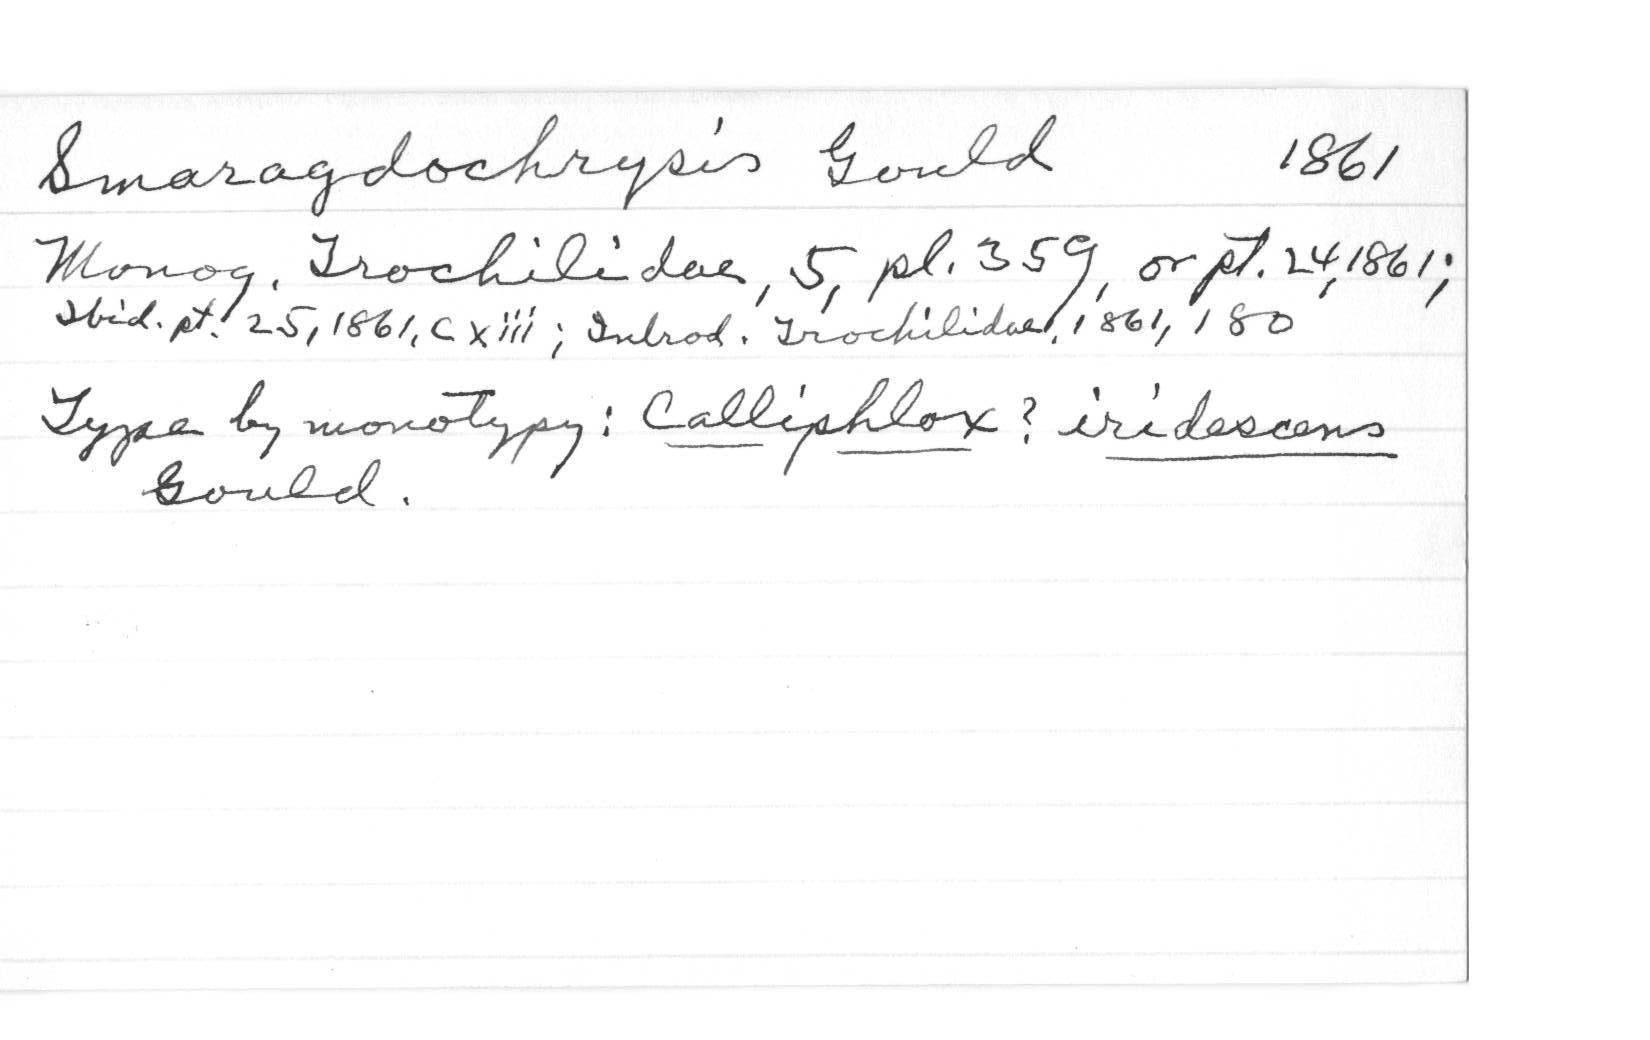 Smaragdochrysis Gould 1861
Monog. Trochilidae, 5, pl. 359, or pt. 24, 1861;
Ibid. pt. 25, 1861, cxiii; Introd. Trochilidae, 1861, 180
Type by monotypy: Calliphlox? iridescens
Gould.